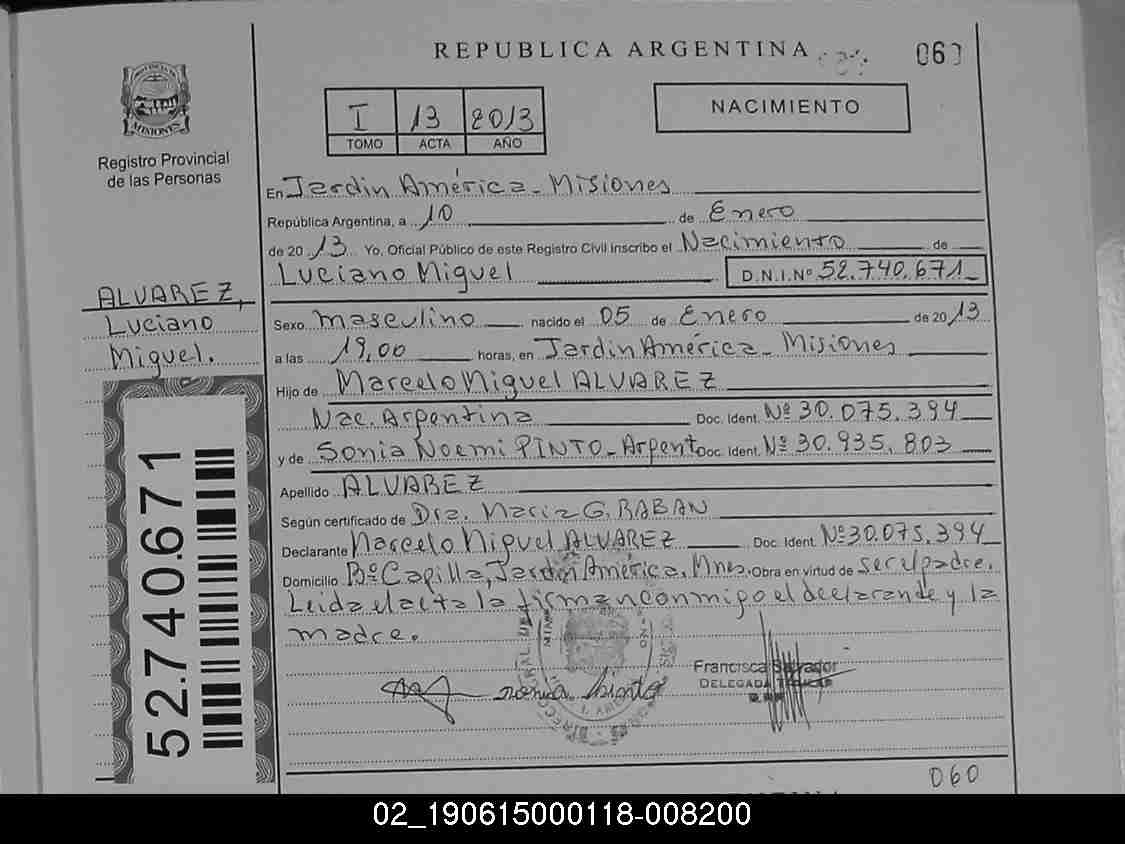 REPUBLICA ARGENTINA
060
PROVINCIA DE MISIONES
Registro Provincial de las Personas
I 13 2013
TOMO ACTA AÑO
NACIMIENTO
En Jardin América - Misiones
República Argentina, a 10 de Enero
de 2013 Yo, Oficial Público de este Registro Civil inscribo el Nacimiento de
Luciano Miguel D.N.I. Nº 52.740.671
ALVAREZ,
Luciano
Miguel.
Sexo Masculino nacido el 05 de Enero de 2013
a las 19,00 horas, en Jardin América - Misiones
Hijo de Marcelo Miguel ALVAREZ
Nac. Argentina Doc. Ident. Nº 30.075.394
y de Sonia Noemi PINTO - Argent Doc. Ident. Nº 30.935.803
Apellido ALVAREZ
Según certificado de Dra. Maria G. RABAN
Declarante Marcelo Miguel ALVAREZ Doc. Ident. Nº 30.075.394
Domicilio Bº Capilla, Jardin América, Mnes. Obra en virtud de ser el padre.
Leida el acta la firman conmigo el declarante y la
madre.
Sonia Pinto
Francisca Salvador
DELEGADA
52.740.671
060
02_190615000118-008200